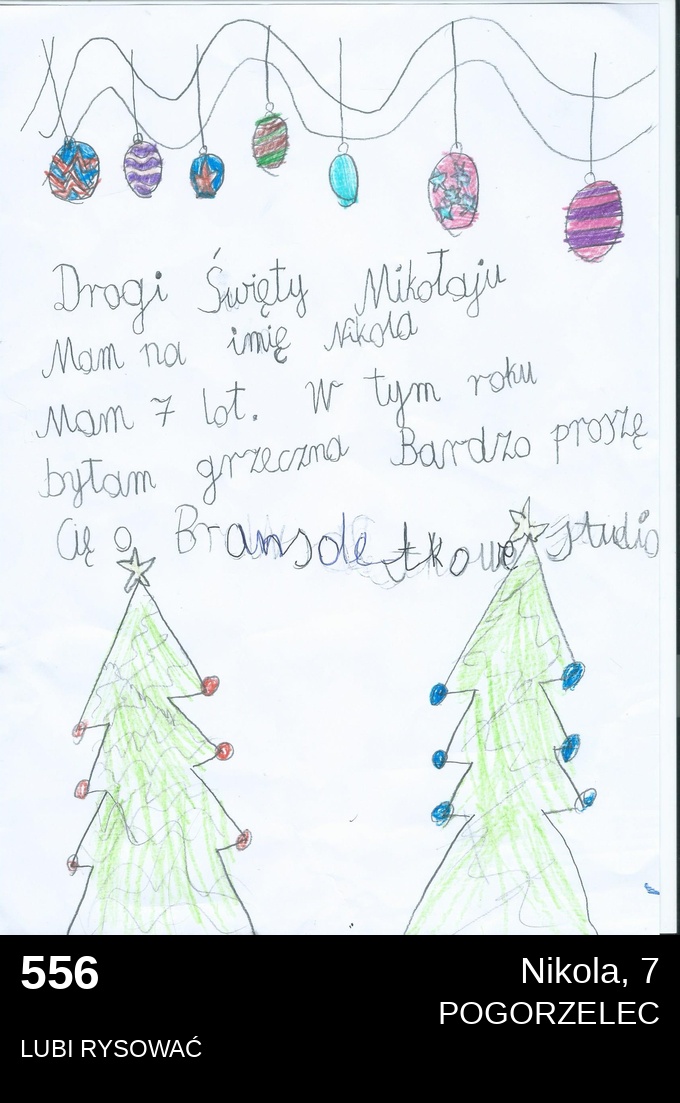 Drogi Święty Mikołaju
Mam na imię Nikola
Mam 7 lat. W tym roku
byłam grzeczna Bardzo proszę
Cię o Bransoletkowe studio
556
Nikola, 7
POGORZELEC
LUBI RYSOWAĆ